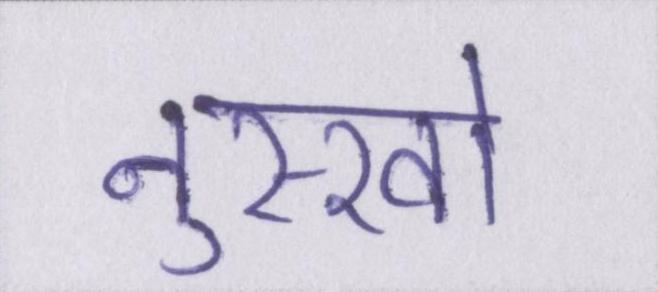 नुस्खो